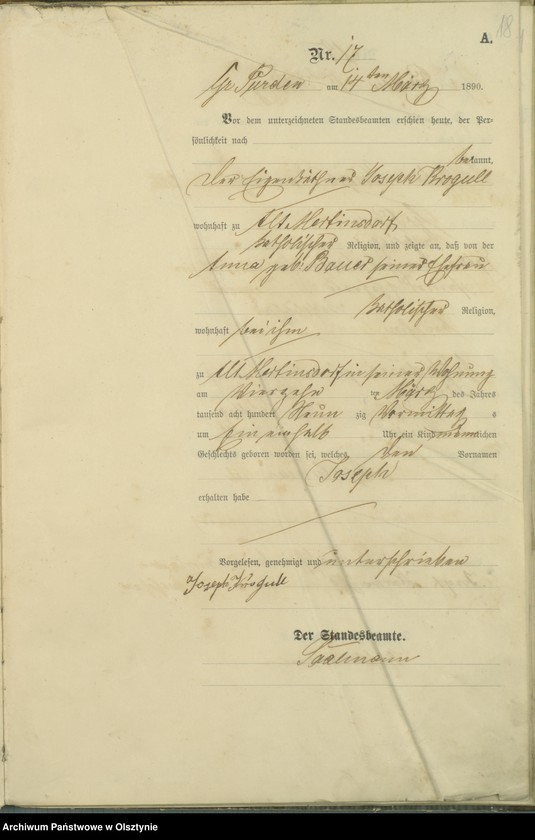 18
A.
Nr. 17
Gr. Purden am 14ten März 1890.
Vor dem unterzeichneten Standesbeamten erschien heute, der Per-
sönlichkeit nach
bekannt,
der Eigenkäthner Joseph Krogull
wohnhaft zu Alt Mertinsdorf
katholischer Religion, und zeigte an, daß von der
Anna geb. Bauer seiner Ehefrau
katholischer Religion,
wohnhaft bei ihm
zu Alt Mertinsdorf in seiner Wohnung
am Vierzehn ten März des Jahres
tausend acht hundert Neun zig Vormittag s
um Ein einhalb Uhr ein Kind männlichen
Geschlechts geboren worden sei, welches den Vornamen
Joseph
erhalten habe
Vorgelesen, genehmigt und unterschrieben
Joseph Krogull
Der Standesbeamte.
Archiwum Państwowe w Olsztynie